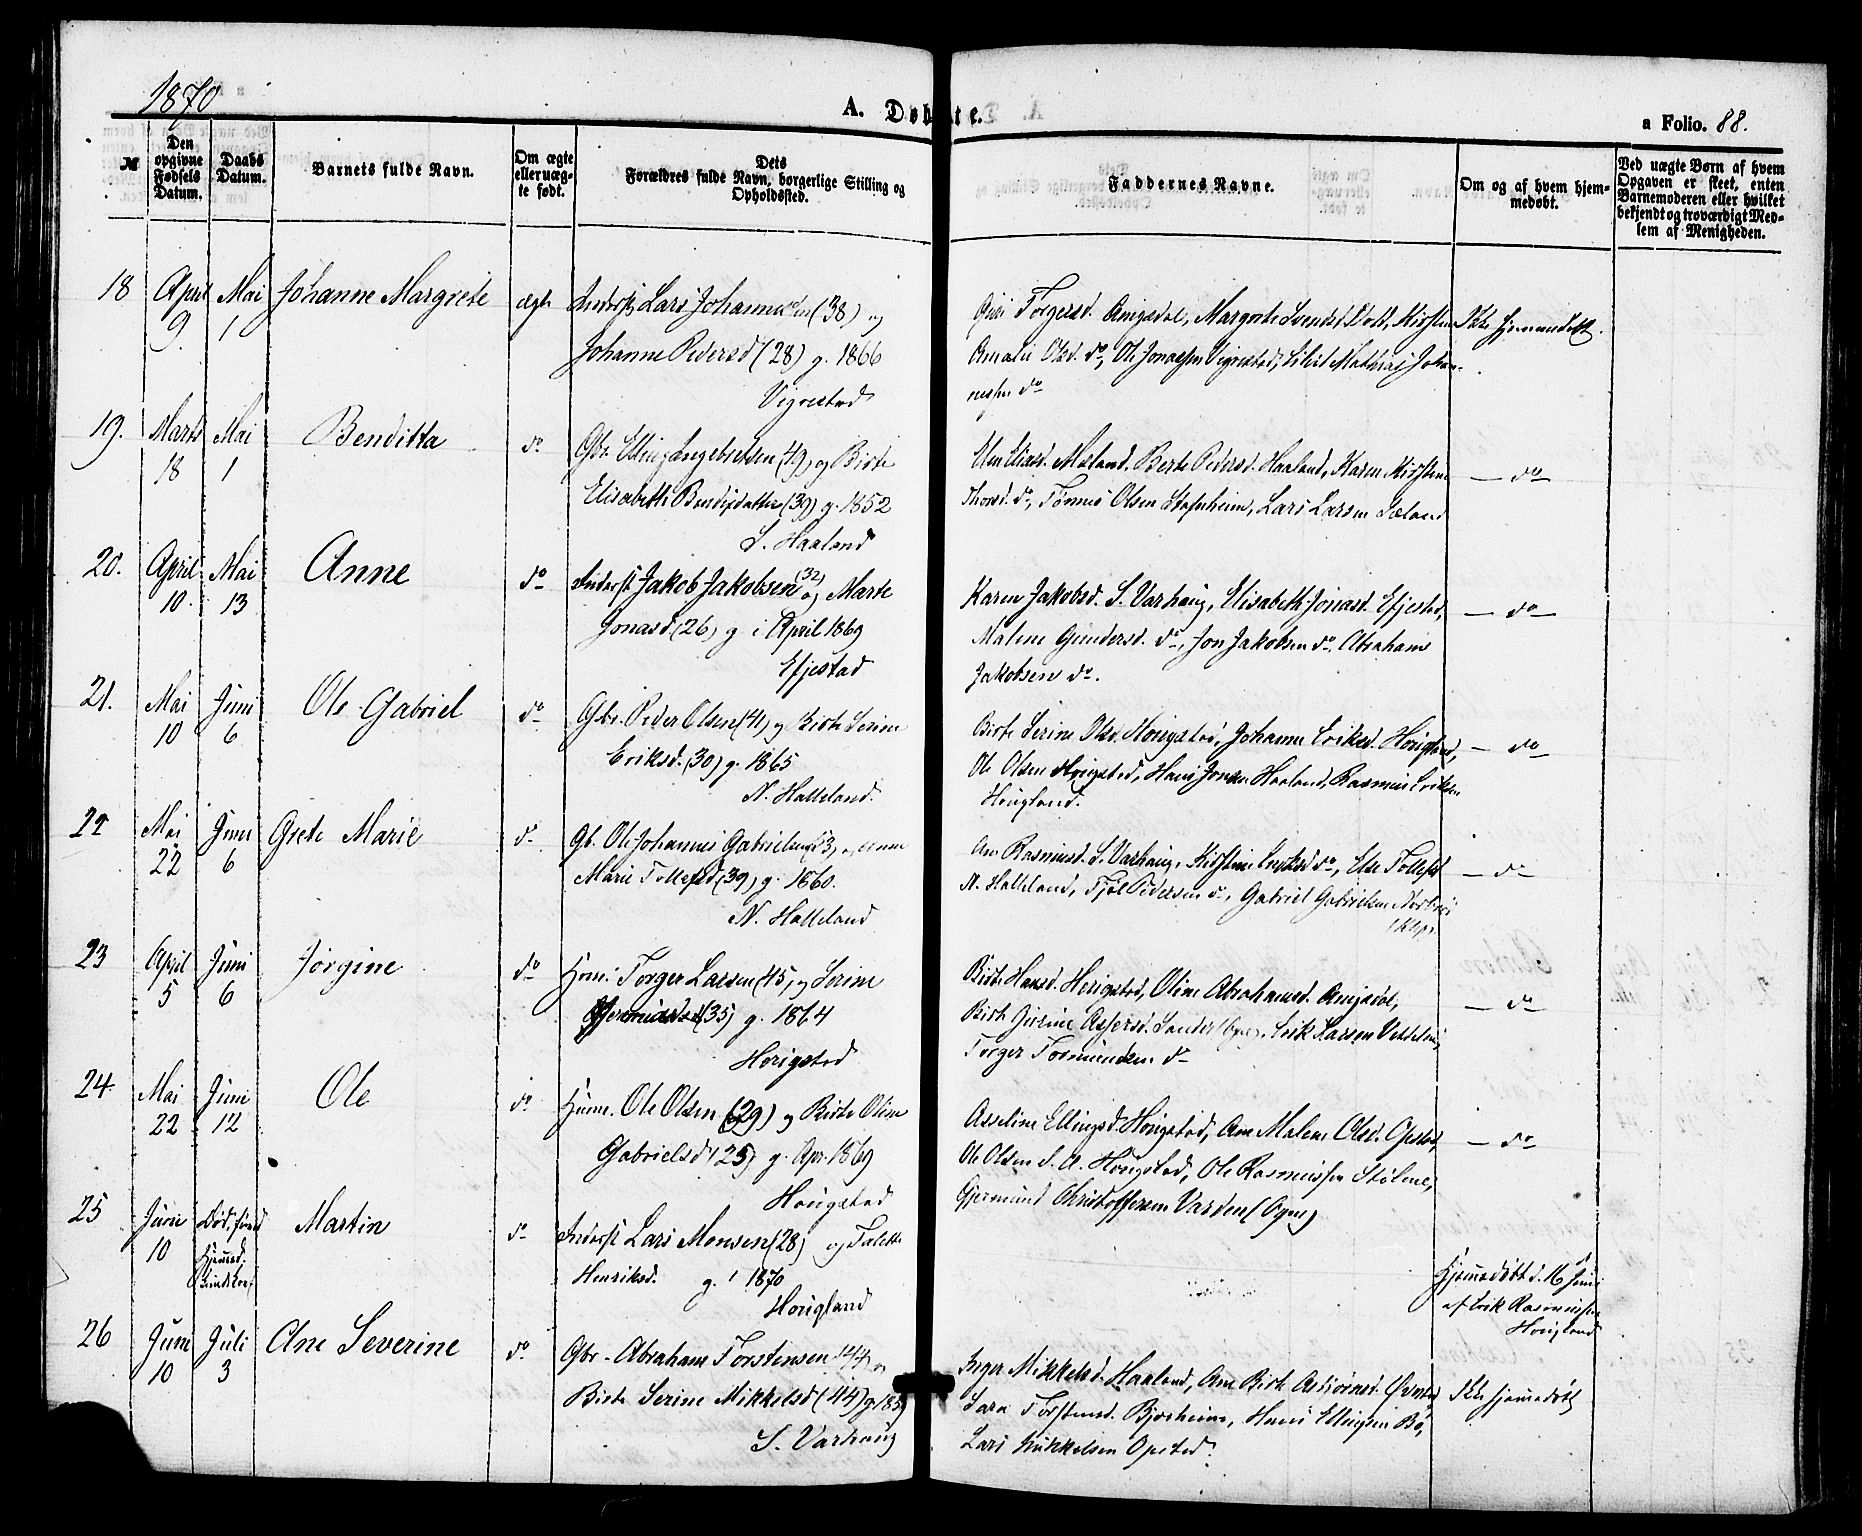 1870
A. Døbte.
a Folio. 88.
№
Den opgivne Fødsels Datum.
Daabs Datum.
Barnets fulde Navn.
Om ægte eller uægte født.
Dets Forældres fulde Navn, borgerlige Stilling og Opholdssted.
Faddernes Navne.
Om og af hvem hjemmedøbt.
Ved uægte Børn af hvem Opgaven er skeet, enten Barnemoderen eller hvilket bekjendt og troværdigt Medlem af Menigheden.
18 April 9 Mai 1 Johanne Margrete ægte Inderst Lars Johannesen (38) og
Johanne Pedersd (28) g. 1866
Vigrestad
Torgersd. Anigsdal, Margrete Svendsd. Kirstine
Amalie Olsd. do, Ole Jonassen Vigrestad, Mathias Johan-
nessen do
Ikke hjemmedøbt.
19. Marts 18 Mai 1 Benditta do Gbr. Elling Ingebretsen (49) og Birte
Elisabeth Bendixdatter (39) g. 1852
S. Haaland
Eliasd. Mæland, Berte Pedersd. Haaland, Karen Kirstine
Thorsd. do, Tønnes Olsen Stafnheim, Lars Larsen Sæland
— do —
20. April 10. Mai 13 Anne do Inderst Jakob Jakobsen (32) og Marte
Jonasd (26) g i April 1869
Efjestad
Karen Jakobsd. S. Varhaug, Elisabeth Jonasd. Efjestad,
Malene Gundersd. do, Jon Jakobsen do, Abraham
Jakobsen do.
— do —
21. Mai 10 Juni 6 Ole Gabriel do Gbr. Peder Olsen (41) og Birte Serine
Eriksd. (30) g. 1865
N. Halleland.
Birte Serine Olsd. Hougstad, Johanne Eriksd. Hougland,
Ole Olsen Hougstad, Hans Jonsen Haaland, Rasmus Eriksen
Hougland.
— do
22 Mai 22 Juni 6 Grete Marie do Gb. Ole Johannes Gabrielsen og Anne
Marie Tollefsd (39) g. 1860.
N. Halleland
Ane Rasmusd. S. Varhaug, Kirstine Eriksd do, Else Tollefsd
N. Halleland, Pedersen do, Gabriel Gabrielsen
— do —
23 April 5 Juni 6 Jørgine do Huusm. Torger Larsen (45) og Serine
(35) g. 1864
Hougstad
Birte Hansd. Hougstad, Oline Abrahamsd. Anigsdal,
Birte Assersd. (Ogne), Erik Larsen
Torger Tormundsen do
— do
24 Mai 22 Juni 12 Ole do Huusm. Ole Olsen (29) og Birte Oline
Gabrielsd (25) g. Apr. 1869
Hougstad
Asseline Ellingsd. Hougstad, Ane Malene Olsd. Opstad,
Ole Olsen S. A. Hougstad, Ole Rasmussen Stølene,
Gjermund Christoffersen Varden (Ogne)
— do —
25 Juni 10 Død, før Martin do Inderst Lars Monsen (28) og Talette
Henriksd. g. 1870
Hougland
Hjemmedøbt d. 16 Juni
af Erik Rasmussen
Hougland
26 Juni 10 Juli 3 Ane Severine do Gbr. Abraham Torstensen (44) og
Birte Serine Mikkelsd (44) g. 1859
S. Varhaug
Inger Mikkelsd. Haaland, Ane Birte Asbjørnsd.
Sara Torstensd. Bjorheim, Hans Ellingsen Bø,
Lars Mikkelsen Opstad.
Ikke hjemmedøbt